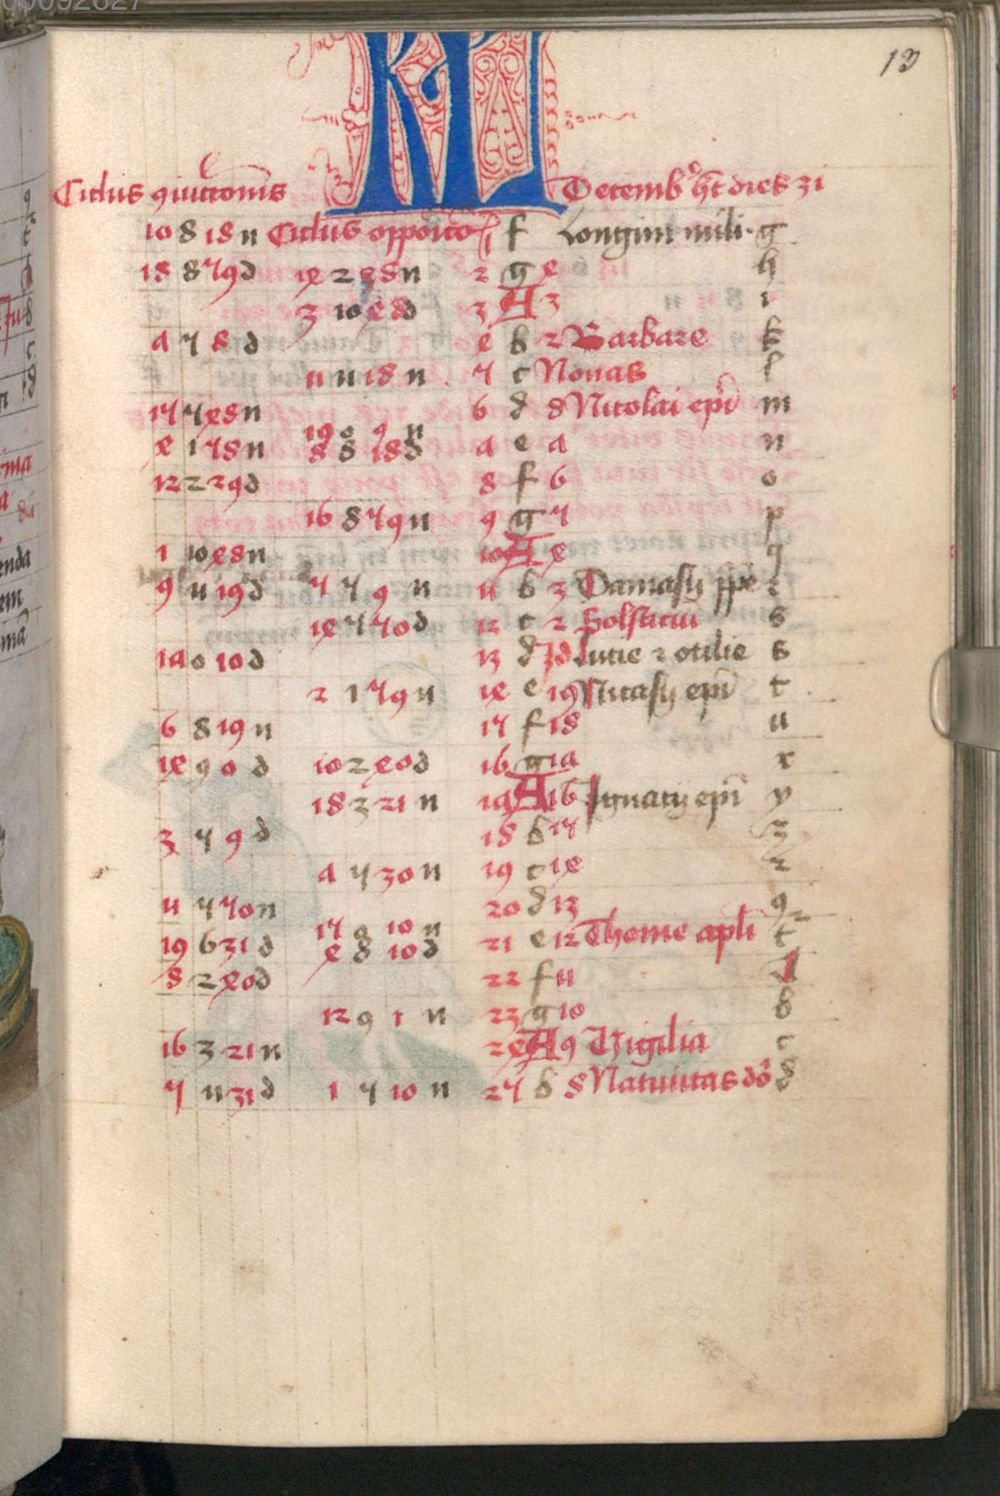 13
KL
Ciclus 9iucconis Decemb' ht dies 31
10 8 18 n Ciclus opposico 1 f Longini mili. g
18 8 49 d 14 2 48 n 2 g 4 h
3 10 48 d 3 A 3 i
7 5 8 d 4 b 2 Barbare k
11 11 18 n 5 c Nonas l
6 d 8 Nicolai epi m
4 1 58 n 8 8 18 d 7 e 7 n
12 2 29 d 8 f 6 o
16 8 59 n 9 g 5 p
1 10 48 n 10 A 4 q
9 11 19 d 5 5 9 n 11 b 3 Damasij ppe r
14 5 50 d 12 c 2 Solsticiu s
17 0 10 d 13 d Id Lucie 2 otilie s
2 1 59 n 14 e 19 Nicasij epi t
6 8 19 n 15 f 18 u
14 9 0 d 10 2 40 d 16 g 17 x
18 3 21 n 17 A 16 Ignacij epi y
3 5 9 d 18 b 15 z
7 5 30 n 19 c 14 2
11 5 50 n 20 d 13 9
19 6 31 d 4 8 10 d 21 e 12 Thome apli t
8 2 40 d 22 f 11 A
12 9 1 n 23 g 10 b
16 3 21 n 24 A 9 Vigilia c
5 11 31 d 1 5 10 n 25 b 8 Natiuitas do d